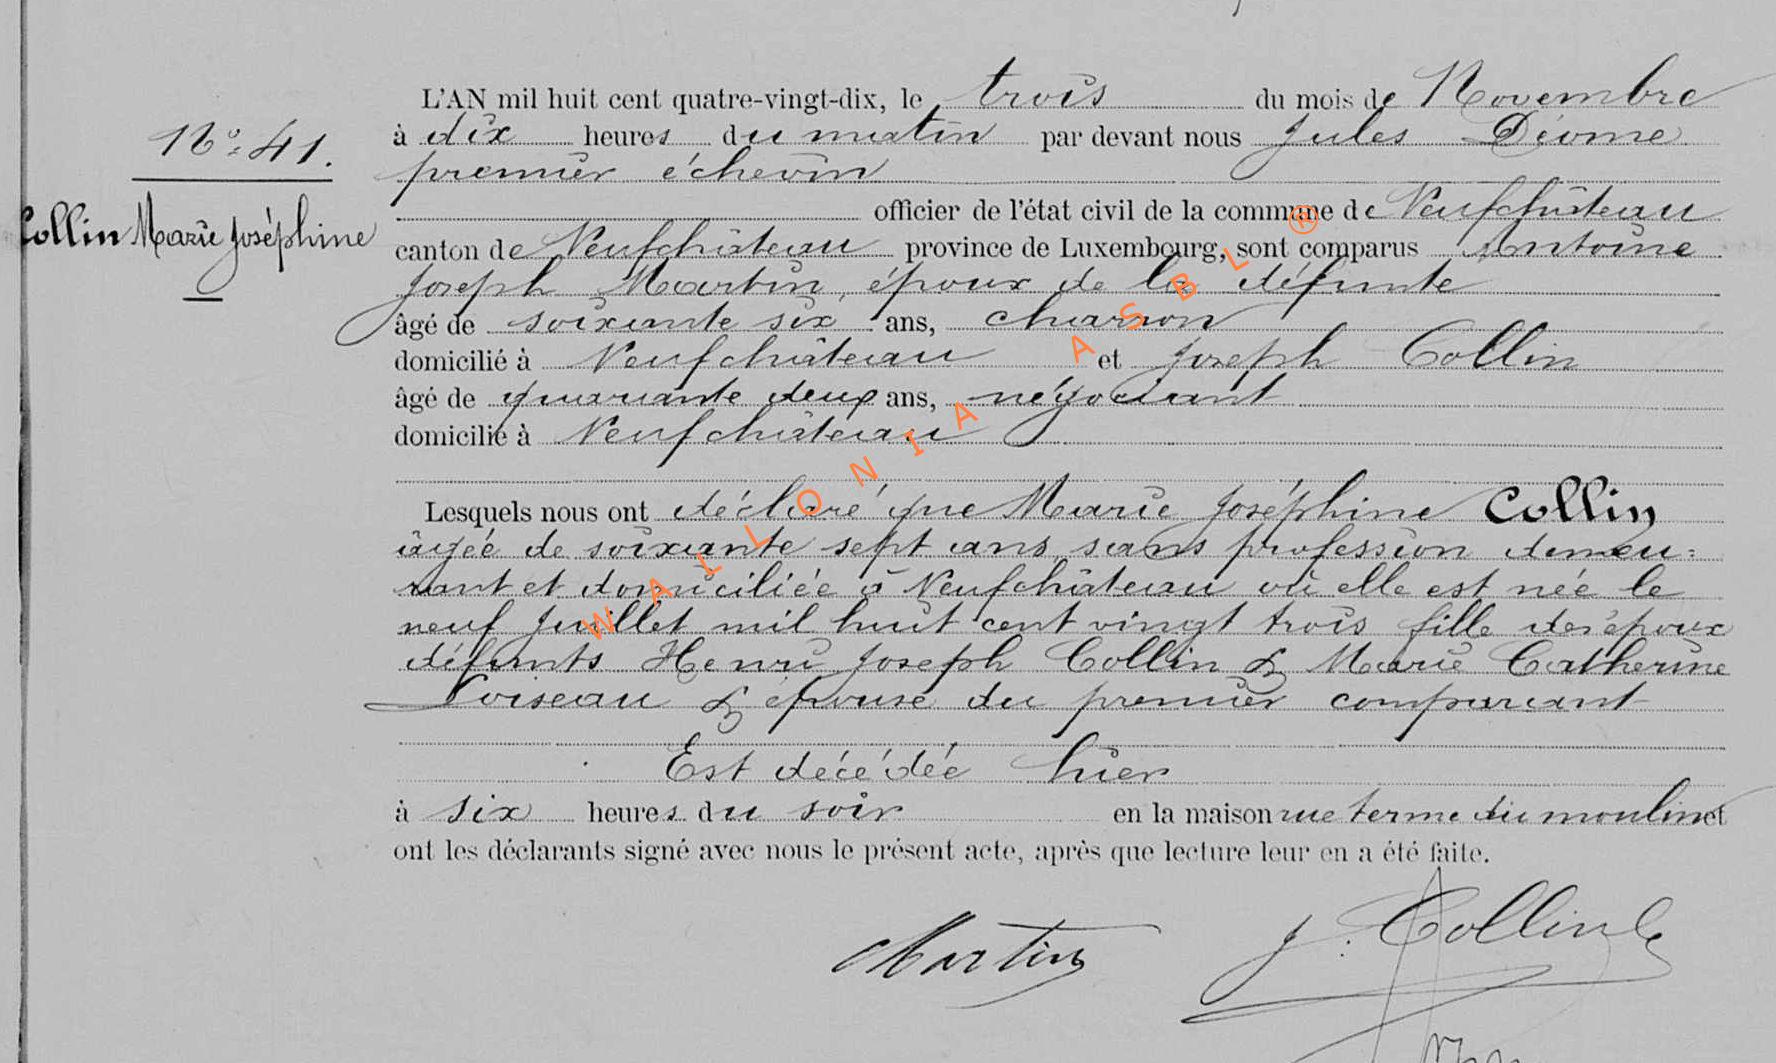 L'AN mil huit cent quatre-vingt-dix, le trois du mois de Novembre
N° 41.
à dix heures du matin par devant nous Jules Déome
premier échevin
Collin Marie Joséphine
officier de l'état civil de la commune de Neufchâteau
canton de Neufchâteau province de Luxembourg, sont comparus Antoine
Joseph Martin, époux de la défunte
âgé de soixante six ans, charron
domicilié à Neufchâteau et Joseph Collin
âgé de quarante deux ans, négociant
domicilié à Neufchâteau
Lesquels nous ont déclaré que Marie Joséphine Collin
âgée de soixante sept ans, sans profession demeu=
rant et domiciliée à Neufchâteau où elle est née le
neuf Juillet mil huit cent vingt trois fille des époux
défunts Henri Joseph Collin & Marie Catherine
Loiseau & épouse du premier comparant
Est décédée hier
à six heures du soir en la maison rue terme du moulin et
ont les déclarants signé avec nous le présent acte, après que lecture leur en a été faite.
Martin J. Collin
WALLONIA ASBL ®